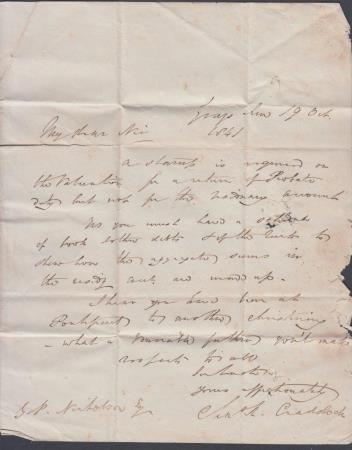 Grays Inn 19 Oct
1841
My dear Sir
A stamp is required on
the Valuation for a return of Probate
duty but not for the residuary account
As you must have a
of book debts of the to
shew how the aggregate sums in
the resid'y acct. are made up.
I hear you have been at
Pontefract to another christening
- what a venerable father you'll make
respects to all
Yours affectionately
J. N. Nicholson Esq Craddock